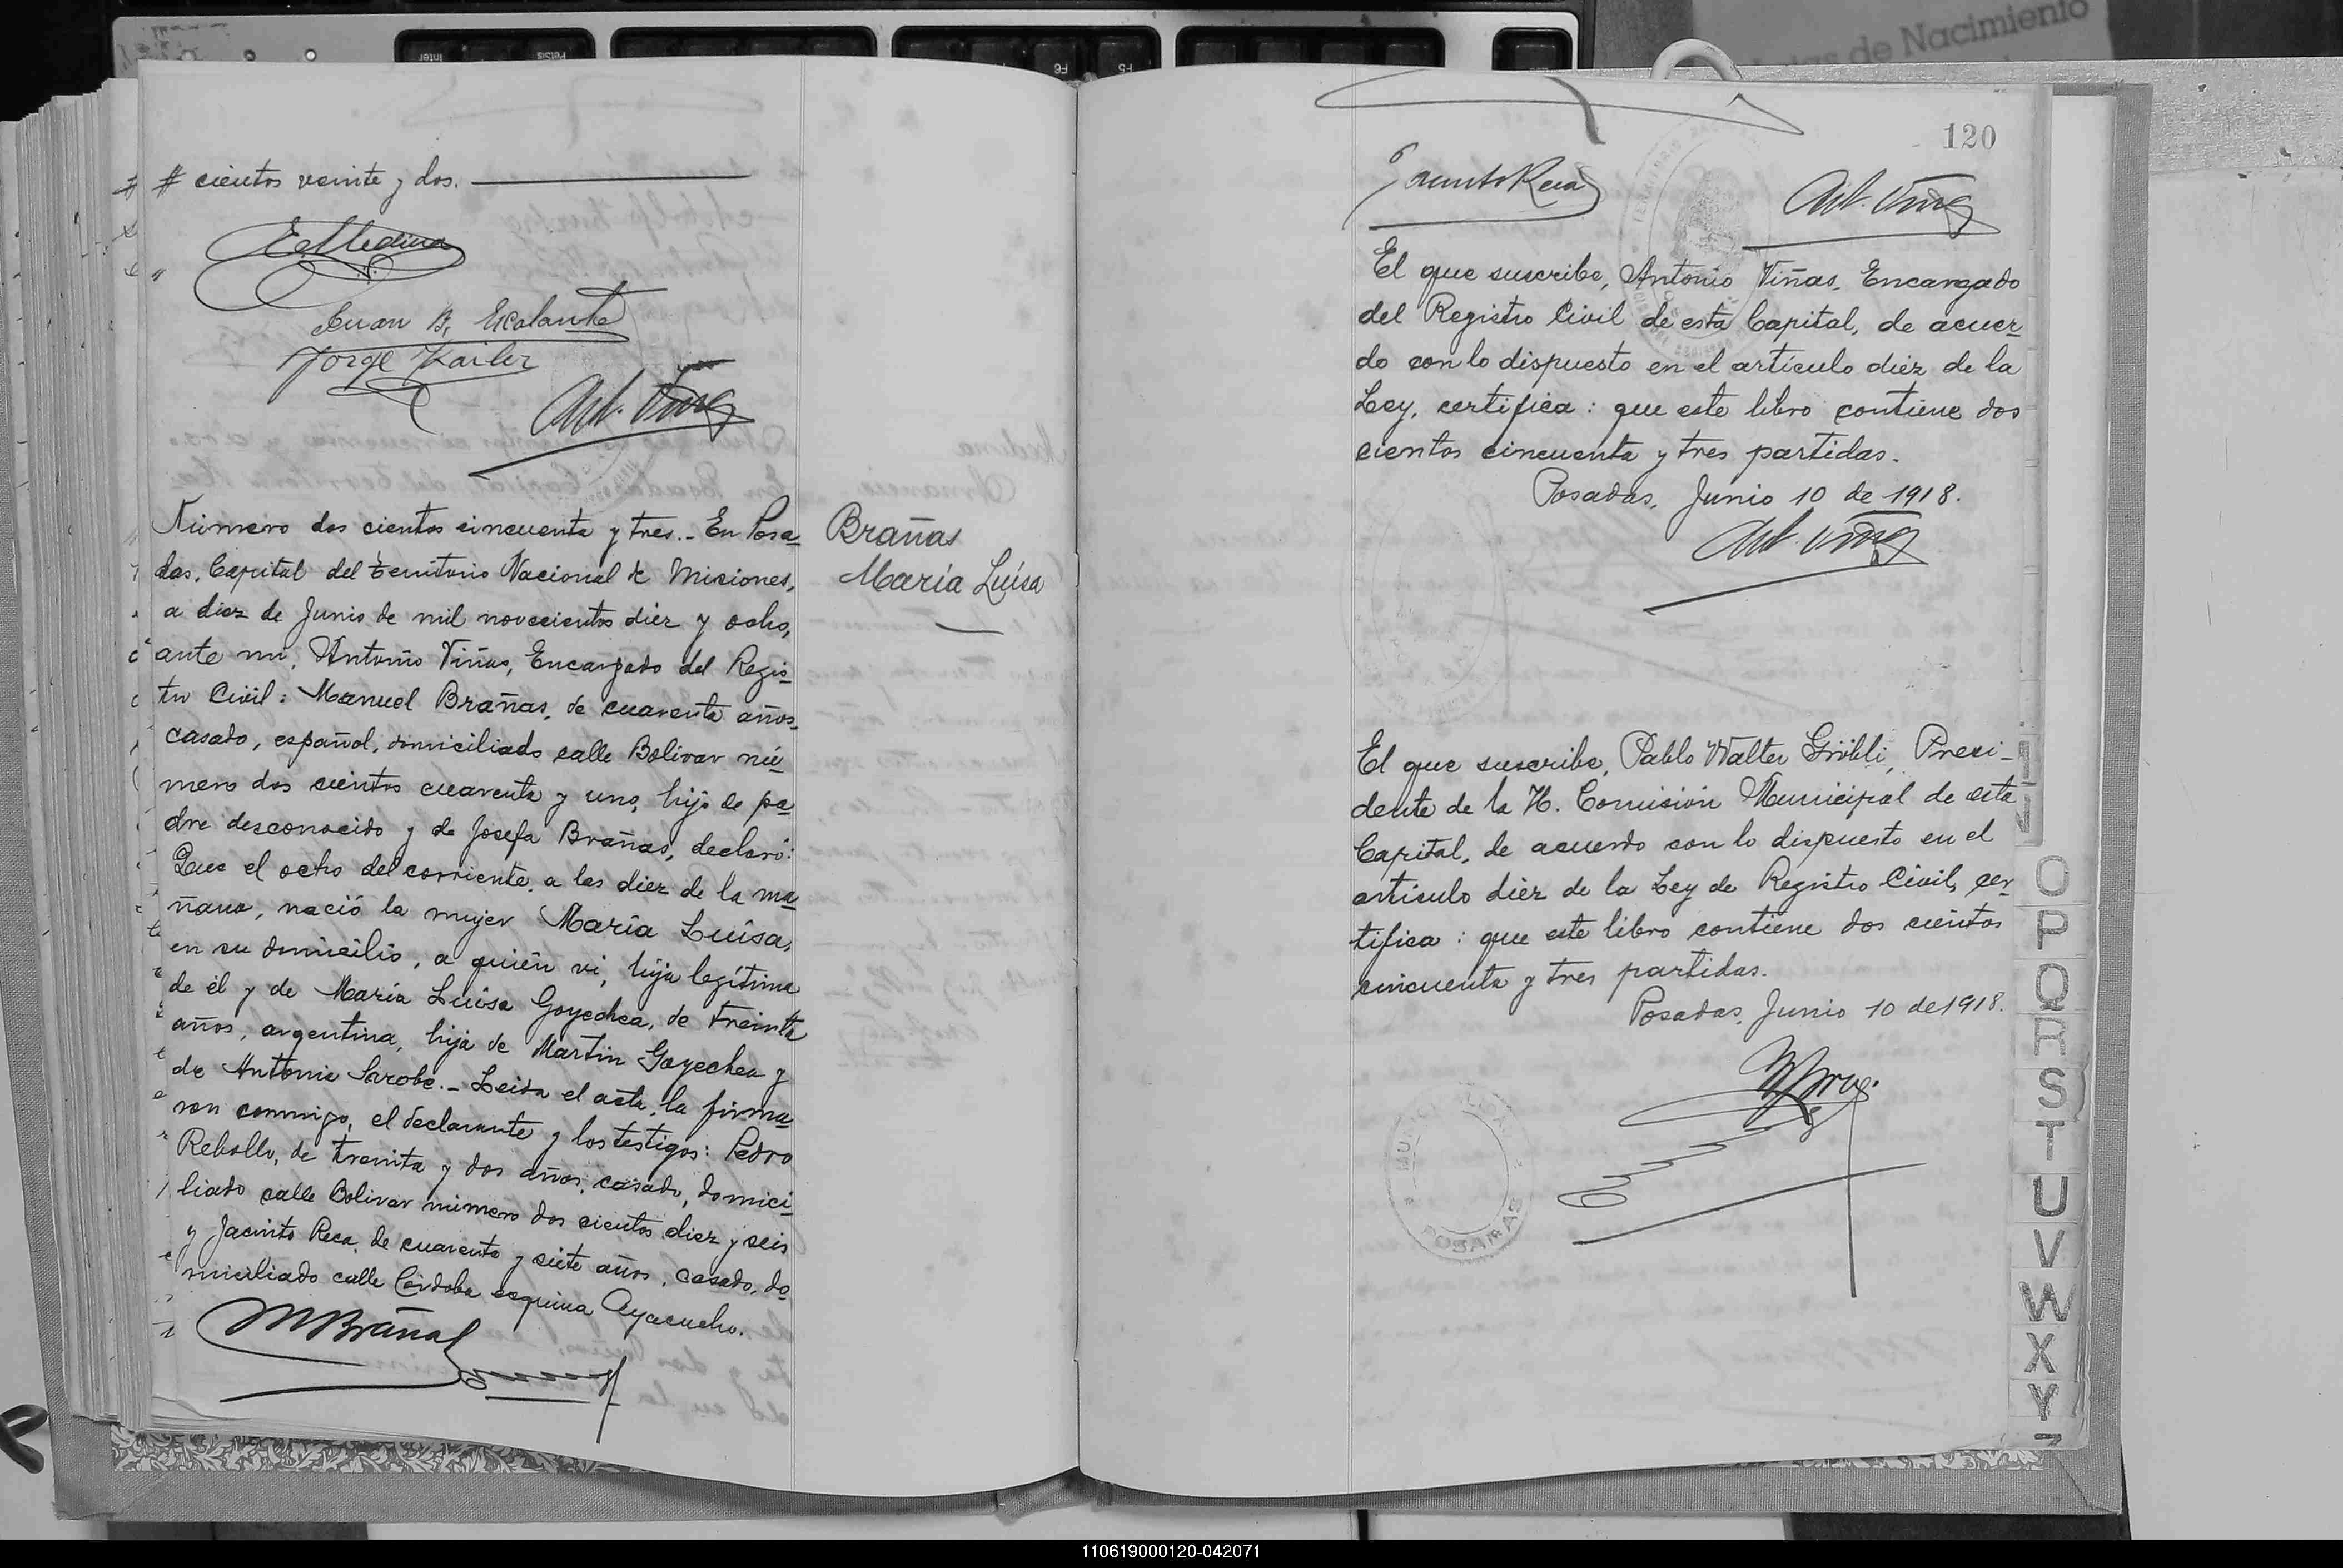 # cientos veinte y dos.
E Medina
Juan B. Escalante
Jorge Kailer
Ant. Viñas
Número dos cientos cincuenta y tres.- En Posa-
das, Capital del Territorio Nacional de Misiones,
a diez de Junio de mil novecientos diez y ocho,
ante mi, Antonio Viñas, Encargado del Regis-
tro Civil: Manuel Brañas, de cuarenta años,
casado, español, domiciliado calle Bolivar nú-
mero dos cientos cuarenta y uno, hijo de pa-
dre desconocido y de Josefa Brañas, declaró:
Que el ocho del corriente, a las diez de la ma-
ñana, nació la mujer María Luisa,
en su domicilio, a quién vi, hija legítima
de él y de María Luisa Goyechea, de treinta
años, argentina, hija de Martín Goyechea y
de Antonia Sarobe.- Leida el acta, la firma-
ron conmigo, el declarante y los testigos: Pedro
Rebollo, de treinta y dos años, casado, domici-
liado calle Bolivar número dos cientos diez y seis
y Jacinto Reca, de cuarenta y siete años, casado, do-
miciliado calle Córdoba esquina Ayacucho.
M Brañas
Brañas
María Luisa
120
Jacinto Reca
Ant. Viñas
El que suscribe, Antonio Viñas, Encargado
del Registro Civil de esta Capital, de acuer-
do con lo dispuesto en el artículo diez de la
Ley, certifica: que este libro contiene dos
cientos cincuenta y tres partidas.
Posadas, Junio 10 de 1918.
Ant. Viñas
El que suscribe, Pablo Walter Gröbli, Presi-
dente de la H. Comisión Municipal de esta
Capital, de acuerdo con lo dispuesto en el
artículo diez de la Ley de Registro Civil, cer-
tifica: que este libro contiene dos cientos
cincuenta y tres partidas.
Posadas, Junio 10 de 1918.
POSADAS
O
P
Q
R
S
T
U
V
W
X
Y
Z
de Nacimiento
110619000120-042071